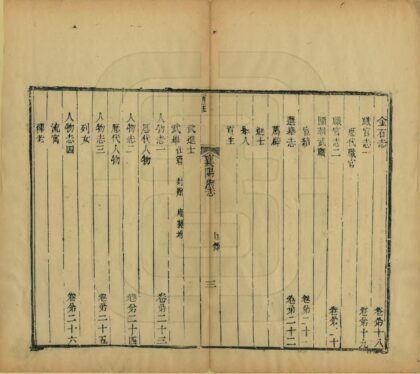 金石志 卷第十八
職官志一 卷第十九
歷代職官
職官志二 卷第二十
國朝武職
宦績 卷第二十一
選舉志 卷第二十二
薦辟
進士
舉人
貢生
襄陽府志 目錄 三
武進士
武舉 仕宦 封贈
人物志一 卷第二十三
歷代人物
人物志二 卷第二十四
歷代人物
人物志三 卷第二十五
列女
人物志四 卷第二十六
流寓
釋老